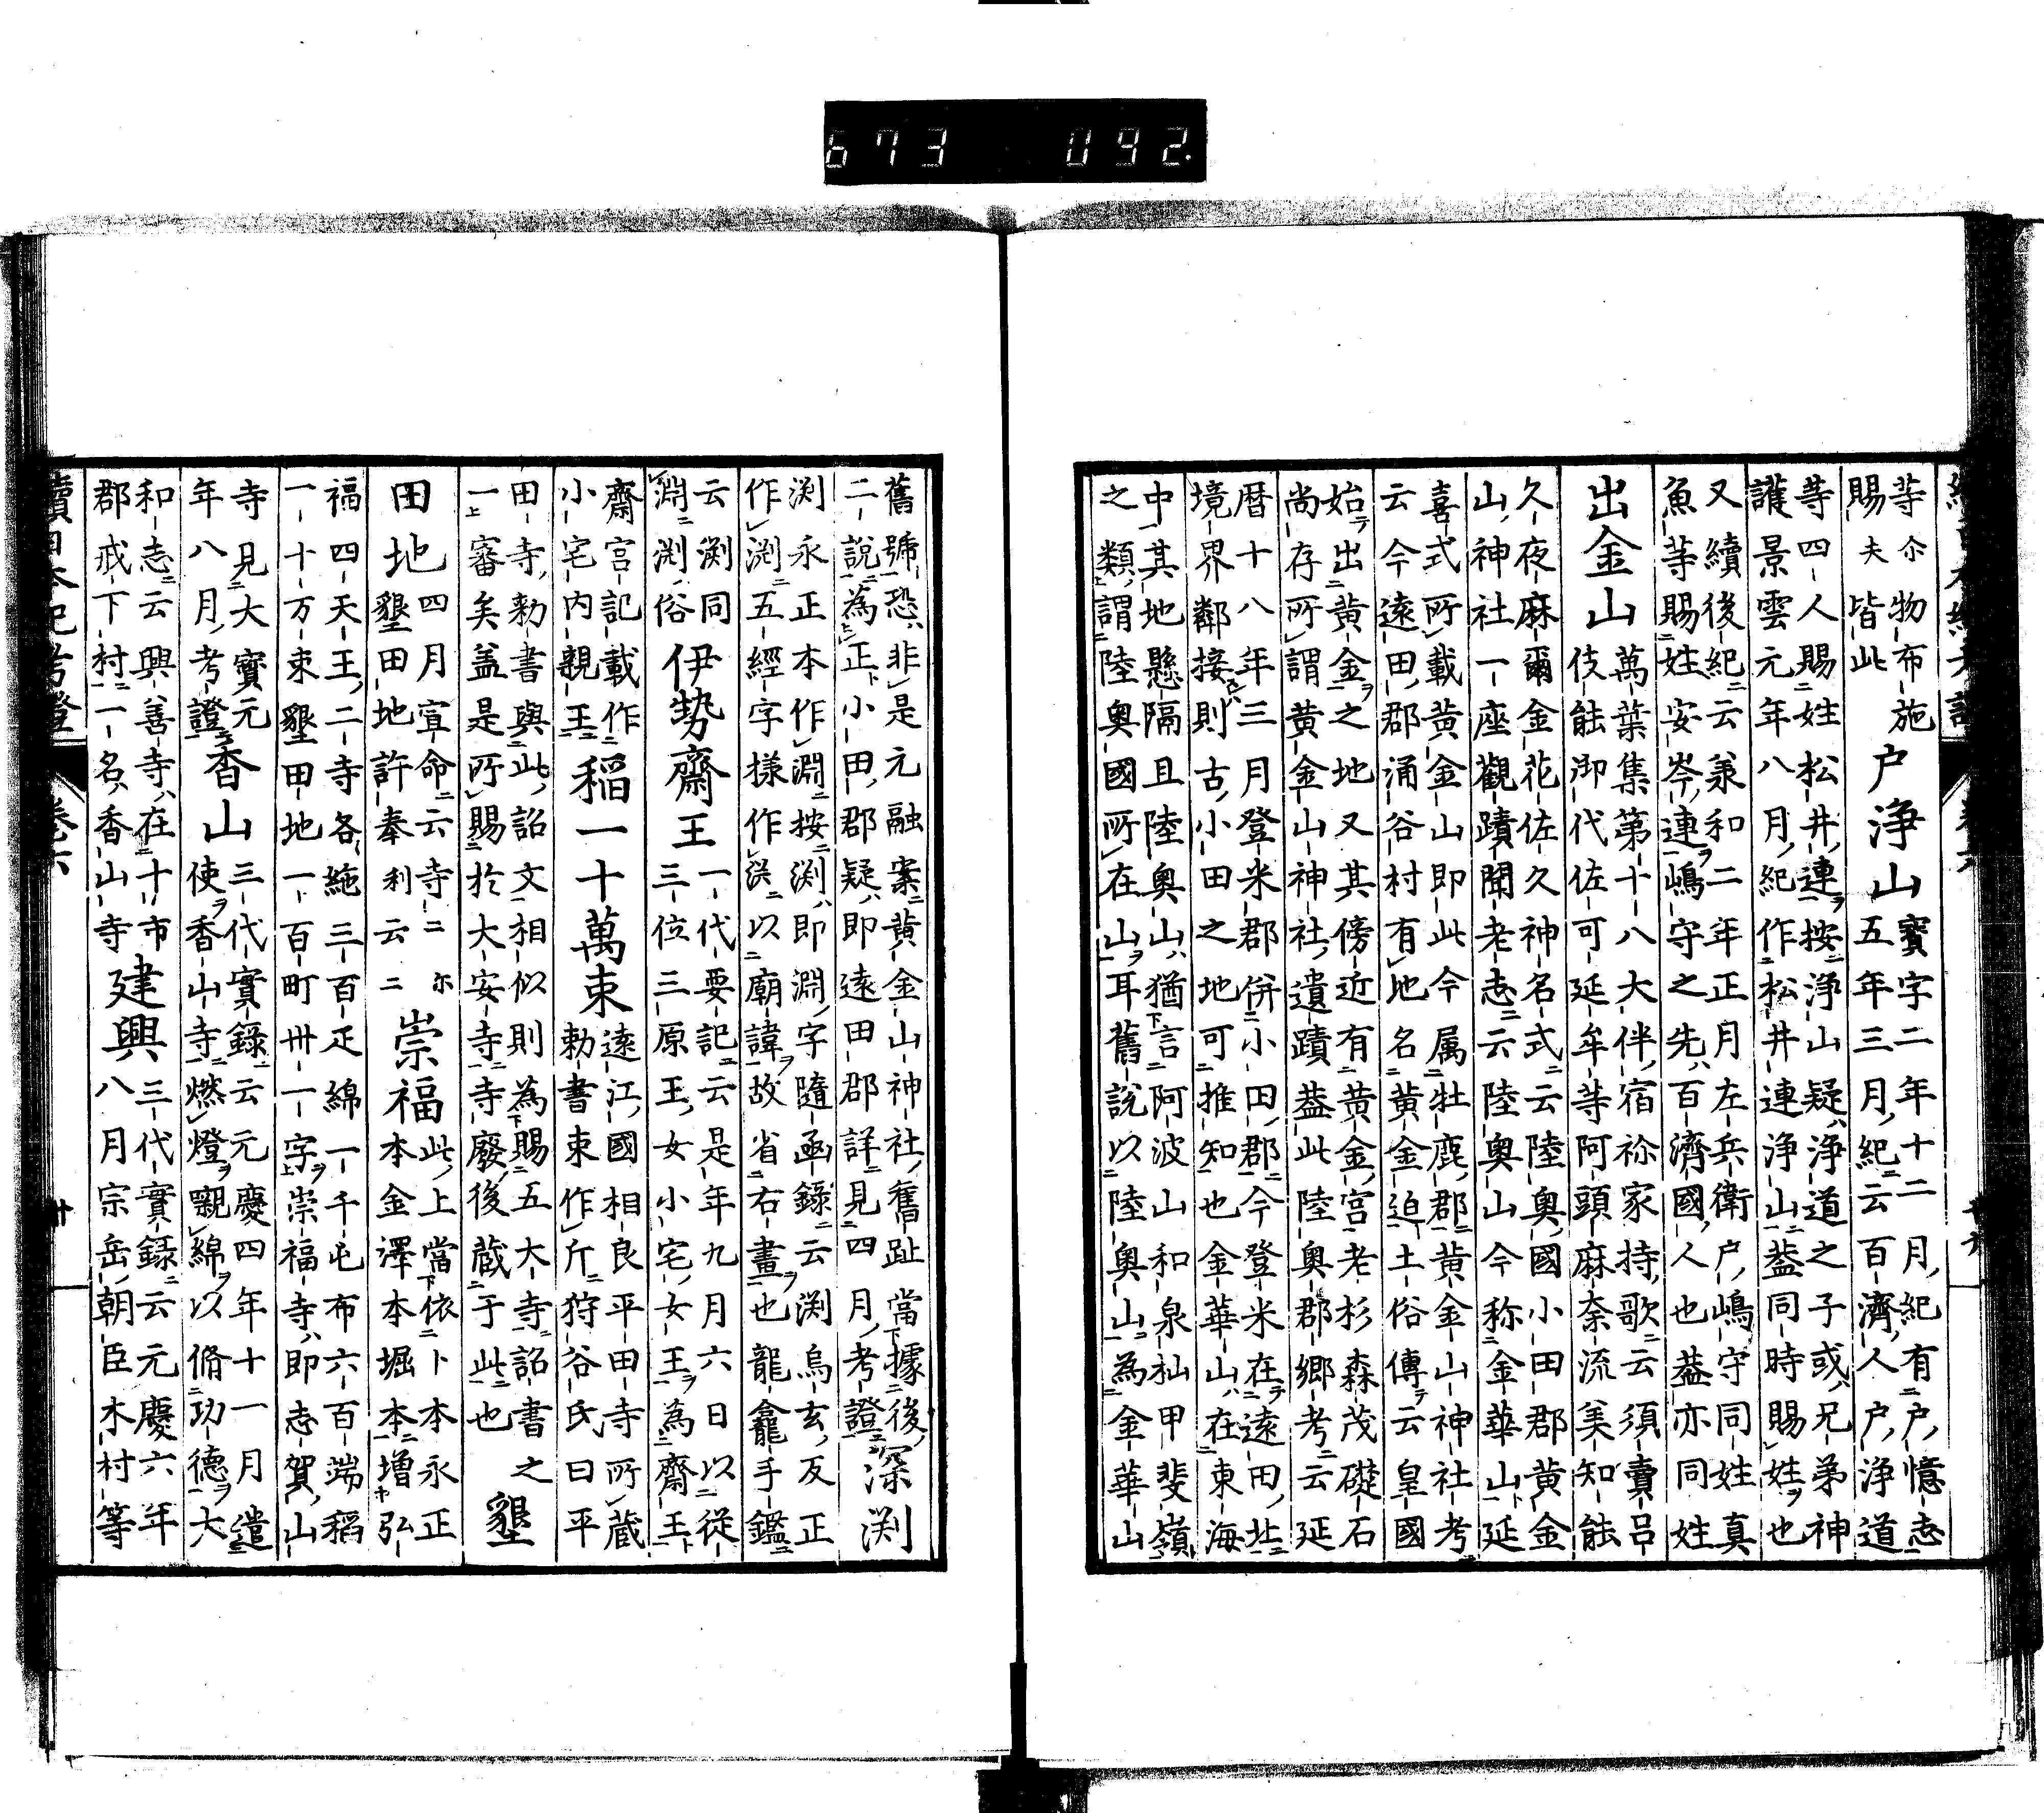 673 092.
等尓物布施
賜夫皆此
戸浄山
寳字二年十二月紀有戸憶志
五年三月紀云百濟人戸浄道
等四人賜姓松井連按浄山疑浄道之子或兄弟神
護景雲元年八月紀作松井連浄山葢同時賜姓也
又續後紀云兼和二年正月左兵衛戸嶋守同姓真
魚等賜姓安岑連嶋守之先百濟國人也葢亦同姓
出金山
萬葉集第十八大伴宿祢家持歌云須賣呂
伎能御代佐可延牟等阿頭麻奈流美知能
久夜麻爾金花佐久神名式云陸奥國小田郡黄金
山神社一座觀蹟聞老志云陸奥山今称金華山延
喜式所載黄金山即此今属牡鹿郡黄金山神社考
云今遠田郡涌谷村有地名黄金迫土俗傳云皇國
始出黄金之地又其傍近有黄金宮老杉森茂礎石
尚存所謂黄金山神社遺蹟葢此陸奥郡郷考云延
暦十八年三月登米郡併小田郡今登米在遠田北
境界鄰接則古小田之地可推知也金華山在東海
中其地懸隔且陸奥山猶言阿波山和泉杣甲斐嶺
之類謂陸奥國所在山耳舊説以陸奥山為金華山
舊號恐非是元融案黄金山神社舊趾當據後
二説為正小田郡疑即遠田郡詳見四月考證
深渕
渕永正本作淵按渕即淵字隨函録云渕烏玄反正
作渕五經字樣作渁以廟諱故省右畫也龍龕手鑑
云渕同
淵渕俗
伊勢齋王
一代要記云是年九月六日以從
三位三原王女小宅女王為齋王
齋宮記載作
小宅内親王
稲一十萬束
遠江國相良平田寺所蔵
勅書束作斤狩谷氏曰平
田寺勅書與此詔文相似則為賜五大寺詔書之
一審矣葢是所賜於大安寺寺廢後蔵于此也
墾
田地
四月宣命云寺二尓
墾田地許奉利云二
崇福
此上當依卜本永正
本金澤本堀本増弘
福四天王二寺各絁三百疋綿一千屯布六百端稲
一十万束墾田地一百町卅一字崇福寺即志賀山
寺見大寳元
年八月考證
香山
三代實録云元慶四年十一月遣
使香山寺燃燈嚫綿以脩功徳大
和志云興善寺在十市
郡戒下村一名香山寺
建興
三代實録云元慶六年
八月宗岳朝臣木村等
續日本紀考證
卷六
卅